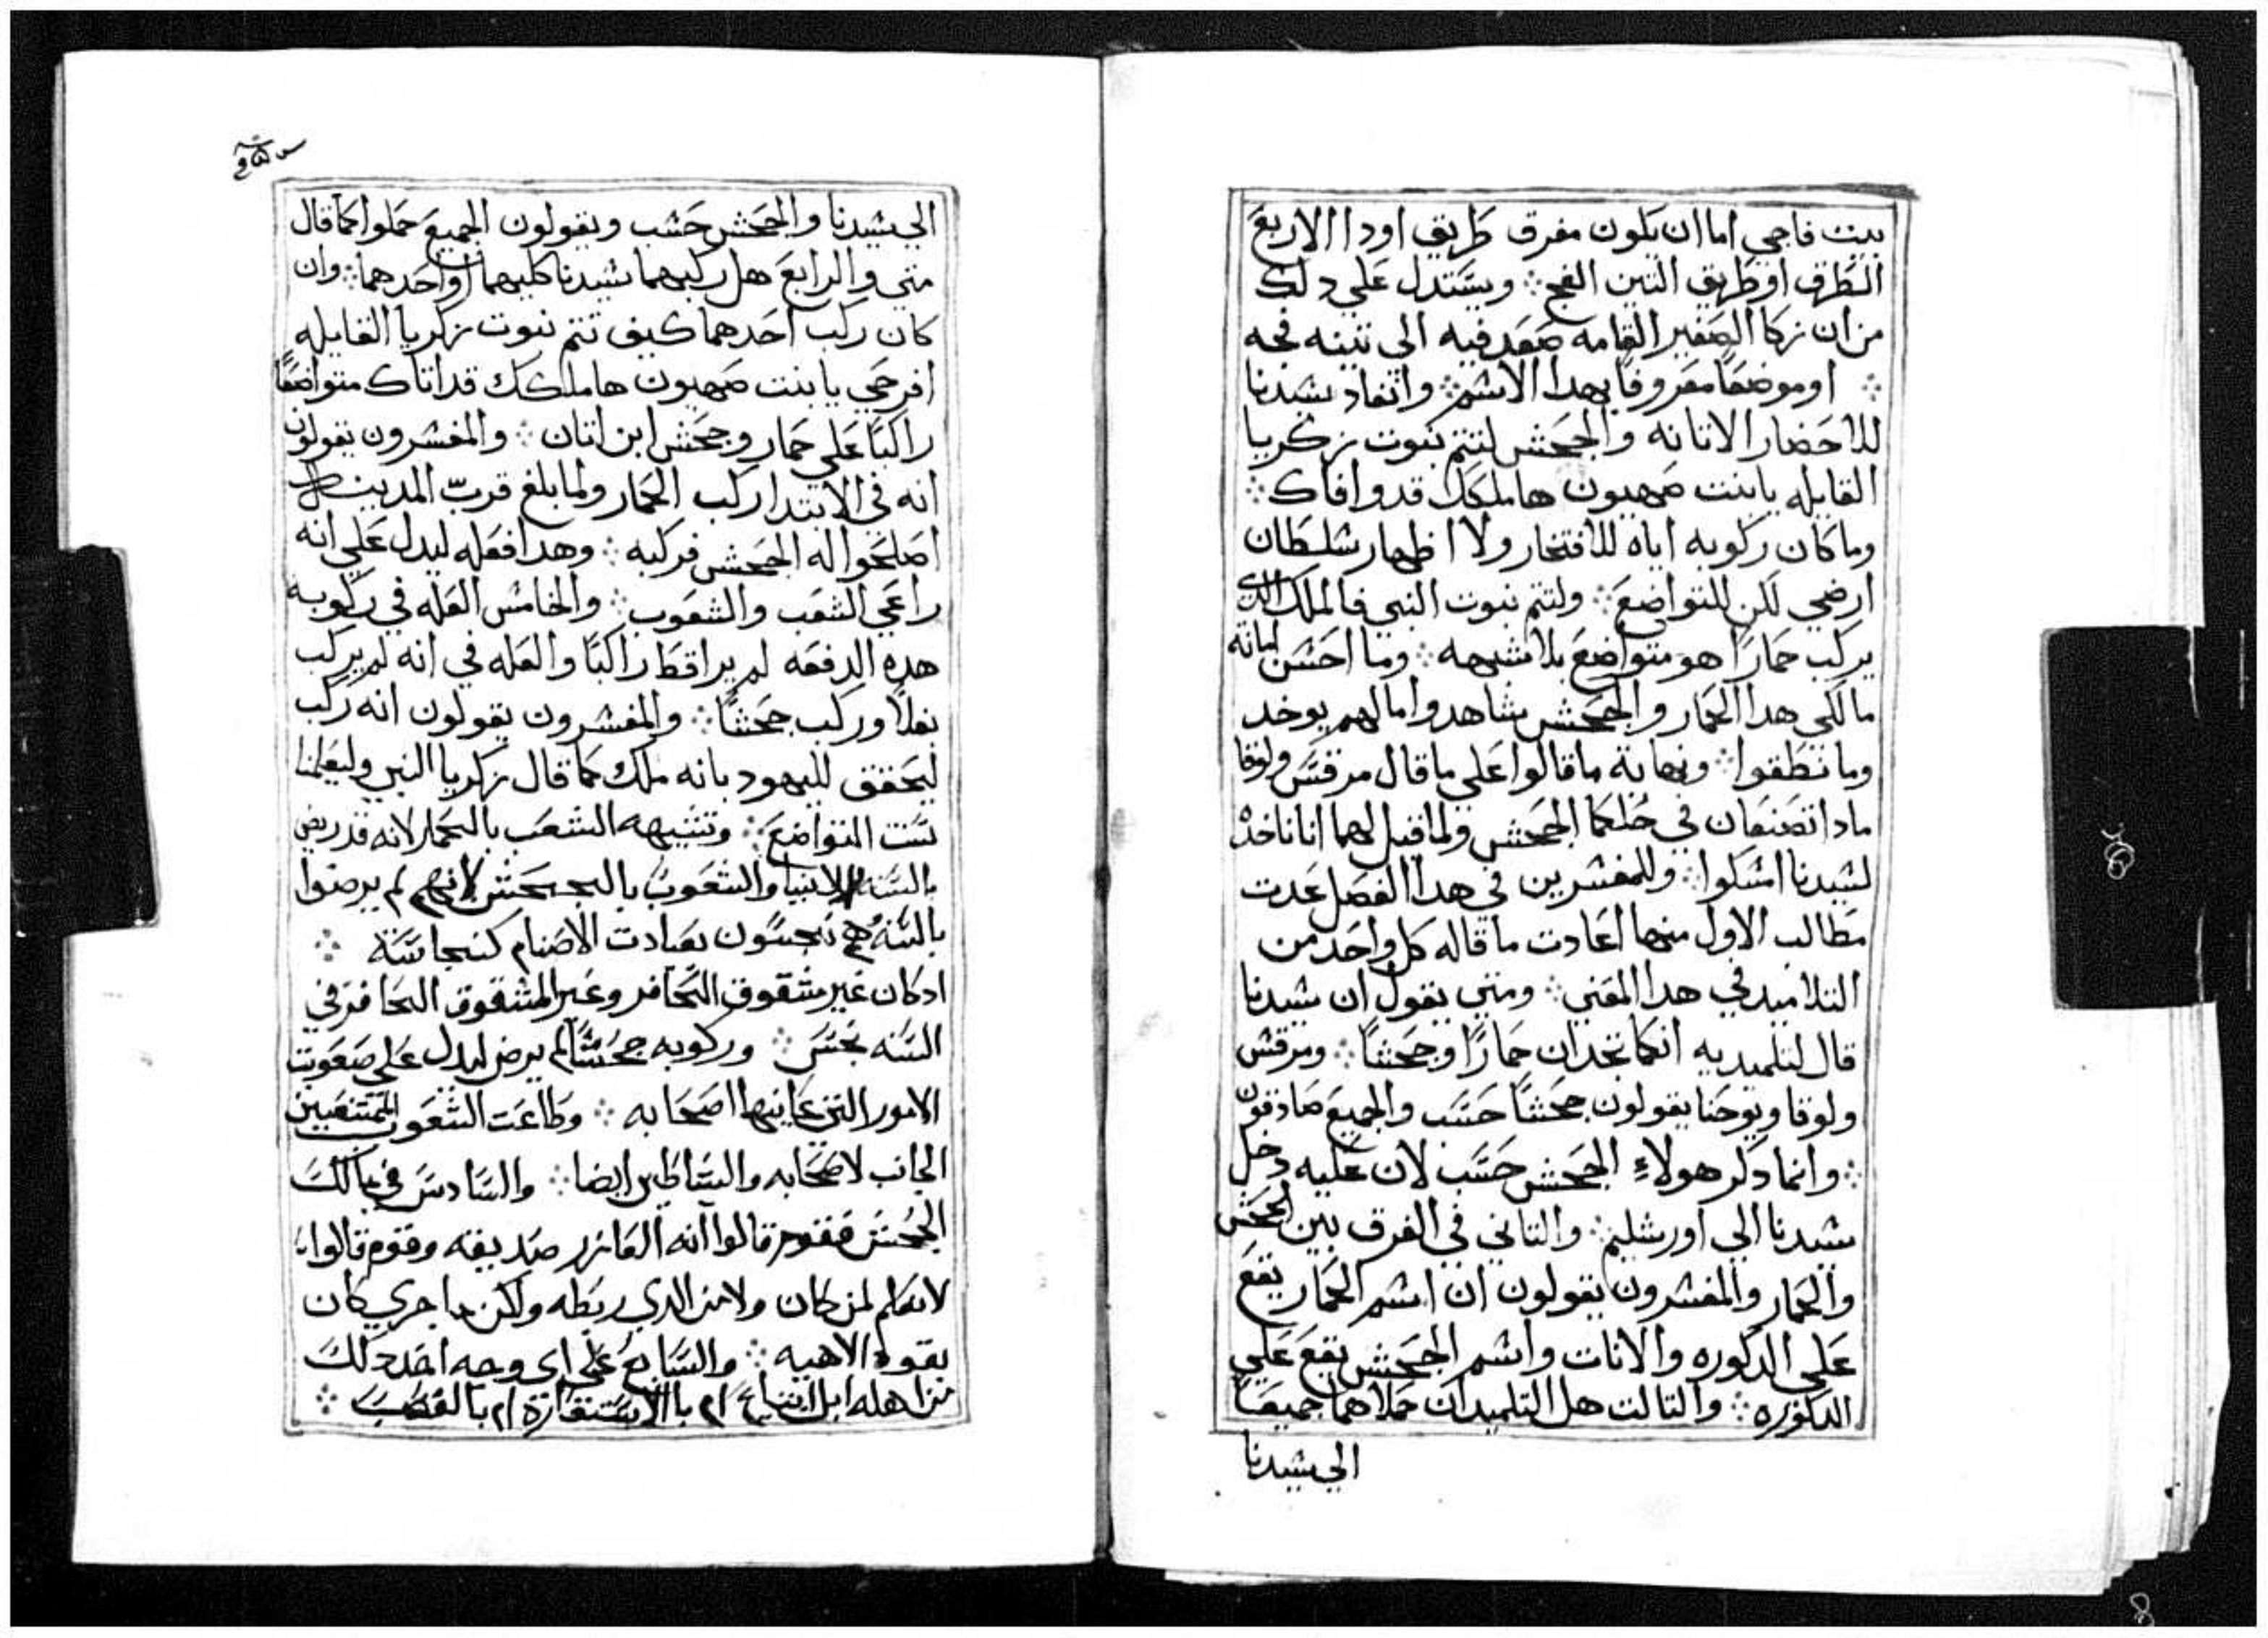 بيت فاجي اما ان يكون مفرق طريق اودا الاربع
الطرق او طريق التين الفج ⁘ ويستدل علي دلك
من ان زكا الصغير القامه صعد فيه الي تينه فجه
⁘ او موضعًا معروفًا بهدا الاسم ⁘ وانفاد سيدنا
لاحضار الاتانه والجحش لتتم نبوت زكريا
القايله يا بنت صهيون ها ملكك قد وافاك ⁘
وما كان ركوبه اياه للافتخار ولا اظهار سلطان
ارضي لكن للتواضع ⁘ ولتتم نبوت النبي فالملك الدي
يركب حمارًا هو متواضع بلا شبهه ⁘ وما احسن امانة
مالكي هدا الحمار والجحش شاهدوا مالهم يوخد
وما نطقوا ⁘ ونهاية ما قالوا علي ما قال مرقس ولوقا
مادا تصنعان في حلكما الجحش ولما قيل لهما اننا ناخده
لسيدنا امسكوا ⁘ وللمفسرين في هدا الفصل عدت
مطالب الاول منها اعادت ما قاله كل واحد من
التلاميد في هدا المعني ⁘ ومتي يقول ان سيدنا
قال لتلميديه انكما تجدان حمارًا وجحشًا ⁘ ومرقس
ولوقا ويوحنا يقولون جحشًا حسب والجميع صادقون
⁘ وانما دكر هولاء الجحش حسب لان عليه دخل
سيدنا الي اورشليم ⁘ والتاني في الفرق بين الجحش
والحمار والمفسرون يقولون ان اسم الحمار يقع
علي الدكوره والانات واسم الجحش يقع علي
الدكوره ⁘ والتالت هل التلميدان حملاهما جميعًا
الي سيدنا
الي سيدنا والجحش حسب ويقولون الجميع حملوا كما قال
متي والرابع هل ركبهما سيدنا كليهما او احدهما ⁘ وان
كان ركب احدهما كيف تتم نبوت زكريا القايله
افرحي يا بنت صهيون ها ملكك قد اتاك متواضعًا
راكبًا علي حمار وجحش ابن اتان ⁘ والمفسرون يقولون
انه في الابتدا ركب الحمار ولما بلغ قربّ المدينه
اصلحوا له الجحش فركبه ⁘ وهدا فعله ليدل علي انه
راعي الشعب والشعوب ⁘ والخامس العله في ركوبه
هده الدفعه لم يرا قط راكبًا والعله في انه لم يركب
بغلًا وركب جحشًا ⁘ والمفسرون يقولون انه ركب
ليحقق لليهود بانه ملك كما قال زكريا النبي وليعلمنا
سنت التواضع ⁘ وتشبيهه الشعب بالحمار لانه قد ريض
بالسنه والانبيا والشعوب بالجحش لانهم لم يرضوا
بالسنه هم نجسون بعبادت الاصنام كنجاسة ⁘
ادكان غير مشقوق الحافر وغير المشقوق الحافر في
السنه نجس ⁘ وركوبه جحشًا لم يرض ليدل علي صعوبت
الامور التي عاينها اصحابه ⁘ وطاعت الشعوب الممتنعين
الجانب لاصحابه والسلاطين ايضا ⁘ والسادس في مالك
الجحش فقوم قالوا انه العازر صديقه وقوم قالوا
لا نعلم لمن كان ولا من الدي ربطه ولكن ما جري كان
بقوه الاهيه ⁘ والسابع علي اي وجه اخد دلك
من اهله ام بالاستعارة ام بالغصب ⁘